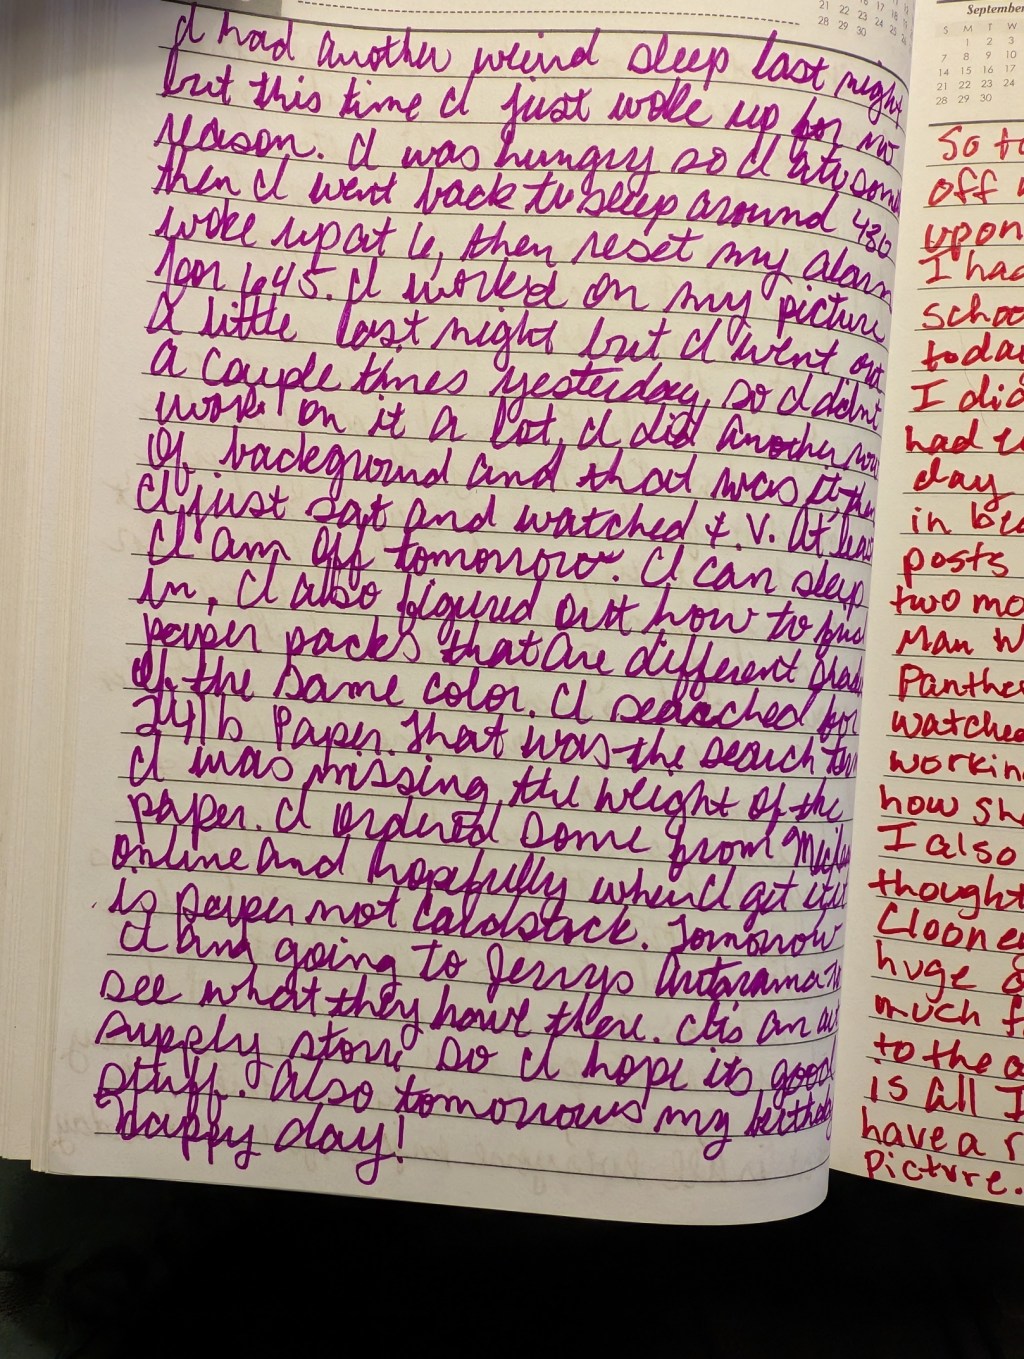 21 22 23 24 25
28 29 30
I had another weird sleep last night
but this time I just woke up for no
reason. I was hungry so I ate some
then I went back to sleep around 430
woke up at 6, then reset my alarm
for 645. I worked on my picture
a little last night but I went out
a couple times yesterday, so I didnt
work on it a lot, I did another row
of background and that was it, then
I just sat and watched t.V. At least
I am off tomorrow. I can sleep
in, I also figured out how to find
paper packs that are different shades
of the same color. I searched for
24 lb Paper. That was the search term
I was missing, the weight of the
paper. I ordered some from
online and hopefully when I get it it
is paper not cardstock. Tomorrow
I am going to Jerrys Artarama to
see what they have there. Its an art
supply store so I hope its good
stuff. Also tomorrows my birthday
happy day!
September
S M T W
1 2 3
7 8 9 10
14 15 16 17
21 22 23 24
28 29 30
So
off
upon
I had
school
today
I did
had
day
in
posts
two
Man
Panther
watched
working
how
I also
thought
Clooney
huge
much
to the
is all I
have a
picture.